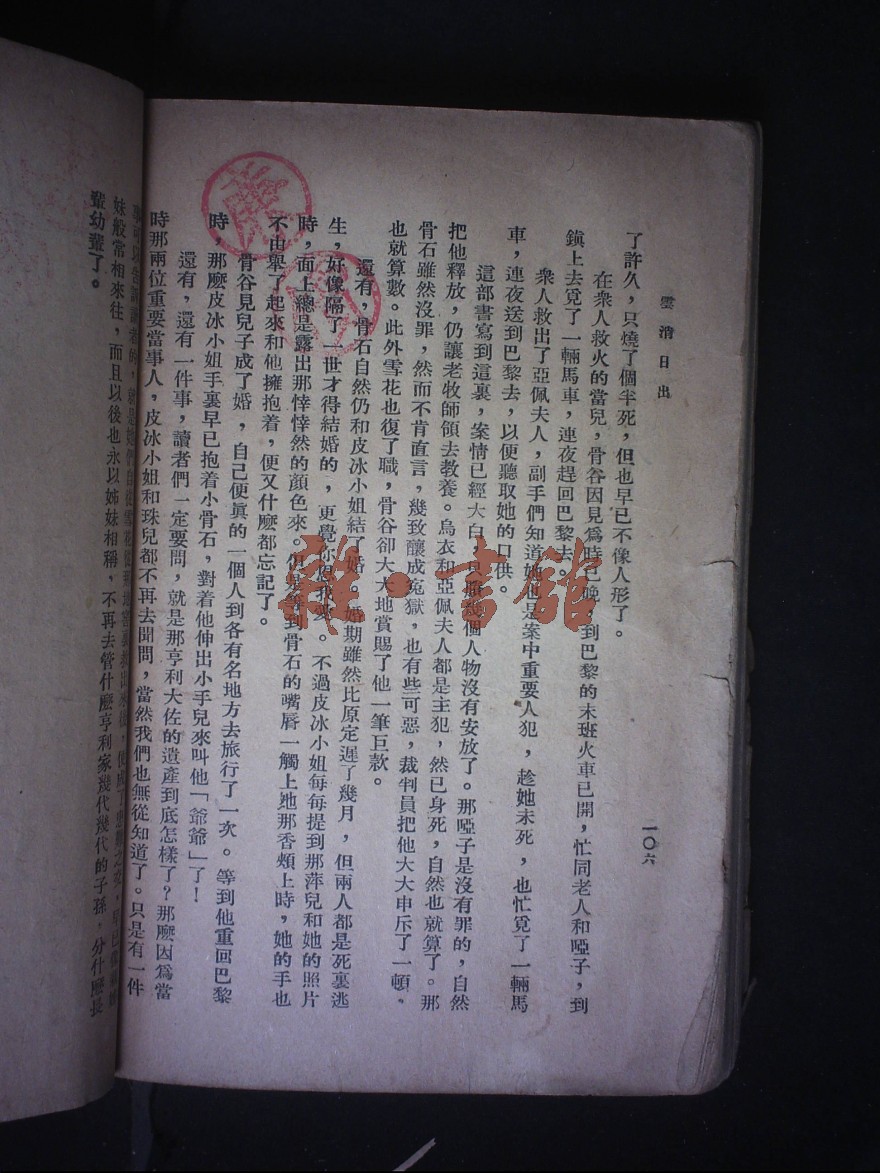 雲消日出
一〇六
了許久，只燒了個半死，但也早已不像人形了。
在衆人救火的當兒，骨谷因見爲時已晚，到巴黎的末班火車已開，忙同老人和啞子，到
鎭上去覓了一輛馬車，連夜趕回巴黎去。
衆人救出了亞佩夫人，副手們知道她也是案中重要人犯，趁她未死，也忙覓了一輛馬
車，連夜送到巴黎去，以便聽取她的口供。
這部書寫到這裏，案情已經大白，只賸幾個人物沒有安放了。那啞子是沒有罪的，自然
把他釋放，仍讓老牧師領去敎養。烏衣和亞佩夫人都是主犯，然已身死，自然也就算了。那
骨石雖然沒罪，然而不肯直言，幾致釀成寃獄，也有些可惡，裁判員把他大大申斥了一頓，
也就算數。此外雪花也復了職，骨谷卻大大地賞賜了他一筆巨款。
還有，骨石自然仍和皮冰小姐結了婚。婚期雖然比原定遲了幾月，但兩人都是死裏逃
生，好像隔了一世才得結婚的，更覺你恩我愛。不過皮冰小姐每每提到那萍兒和她的照片
時，面上總是露出那悻悻然的顏色來。但是等到骨石的嘴唇一觸上她那香頰上時，她的手也
不由舉了起來和他擁抱着，便又什麽都忘記了。
骨谷見兒子成了婚，自己便眞的一個人到各有名地方去旅行了一次。等到他重回巴黎
時，那麽皮冰小姐手裏早已抱着小骨石，對着他伸出小手兒來叫他「爺爺」了！
還有，還有一件事，讀者們一定要問，就是那亨利大佐的遺產到底怎樣了？那麽因爲當
時那兩位重要當事人，皮冰小姐和珠兒都不再去聞問，當然我們也無從知道了。只是有一件
妹般常相來往，而且以後也永以姊妹相稱，不再去管什麽亨利家幾代幾代的子孫，分什麽長
輩幼輩了。
雜·書館